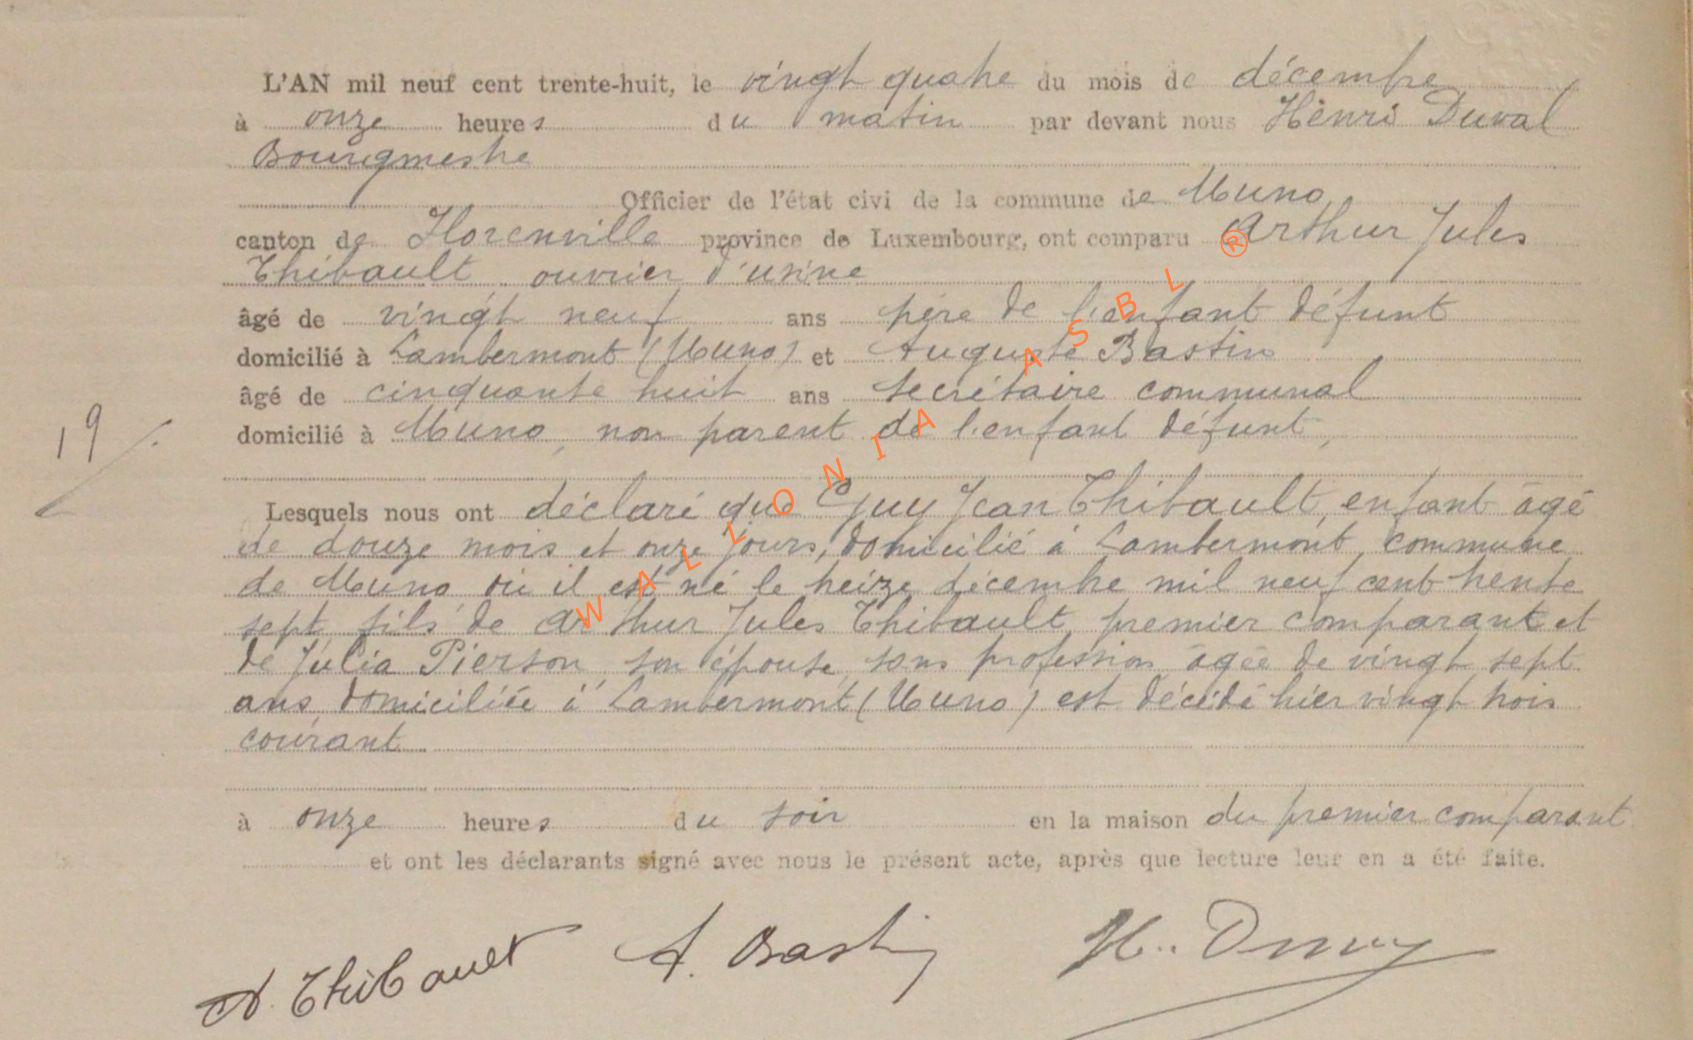 L'AN mil neuf cent trente-huit, le vingt quatre du mois de décembre
à onze heures du matin par devant nous Henri Duval
Bourgmestre
Officier de l'état civi de la commune de Muno
canton de Florenville province de Luxembourg, ont comparu Arthur Jules
Thibault ouvrier d'usine
âgé de vingt neuf ans père de l'enfant défunt
domicilié à Lambermont (Muno) et Auguste Bastin
âgé de cinquante huit ans secrétaire communal
domicilié à Muno, non parent de l'enfant défunt,
19
Lesquels nous ont déclaré que Guy Jean Thibault, enfant âgé
de douze mois et onze jours, domicilié à Lambermont, commune
de Muno où il est né le treize décembre mil neuf cent trente
sept, fils de Arthur Jules Thibault, premier comparant et
de Julia Pierson, son épouse, sans profession, âgée de vingt sept
ans, domiciliée à Lambermont (Muno) est décédé hier vingt trois
courant
à onze heures du soir en la maison du premier comparant
et ont les déclarants signé avec nous le présent acte, après que lecture leur en a été faite.
A. Thibault A. Bastin H. Duval
WALLONIA ASBL ®